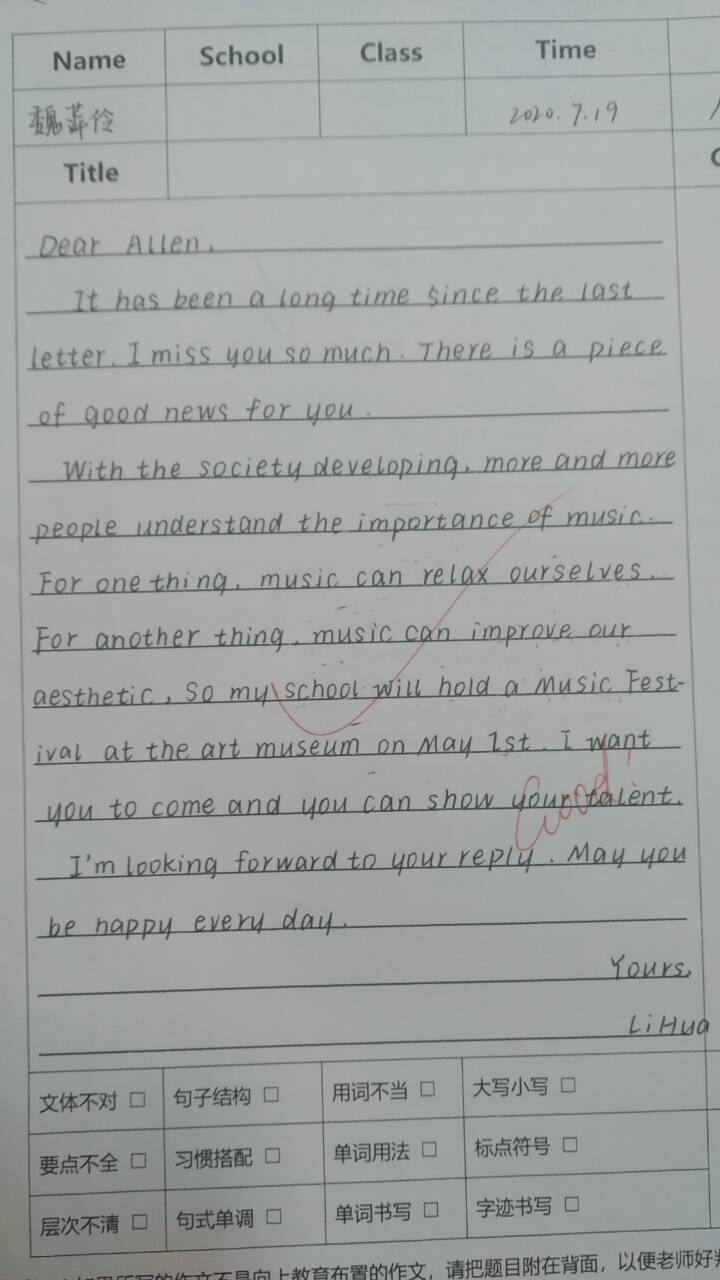 Name School Class Time
魏 伶 2020.7.19
Title
Dear Allen,
It has been a long time since the last
letter. I miss you so much. There is a piece
of good news for you.
With the society developing, more and more
people understand the importance of music.
For one thing, music can relax ourselves.
For another thing, music can improve our
aesthetic, So my school will hold a Music Fest-
ival at the art museum on May 1st. I want
you to come and you can show your talent.
Good!
I'm looking forward to your reply. May you
be happy every day.
Yours,
LiHua
文体不对 □ 句子结构 □ 用词不当 □ 大写小写 □
要点不全 □ 习惯搭配 □ 单词用法 □ 标点符号 □
层次不清 □ 句式单调 □ 单词书写 □ 字迹书写 □
如果所写的作文不是向上教育布置的作文，请把题目附在背面，以便老师好判